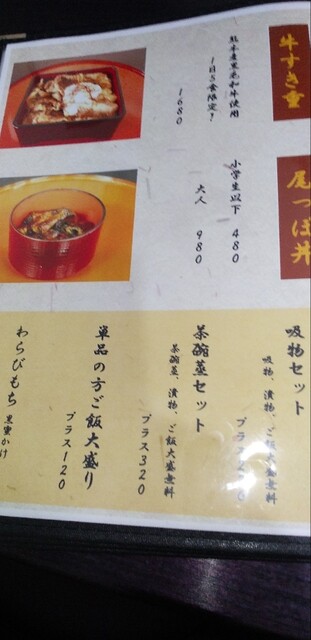 牛すき重
熊本産黒毛和牛使用
1日5食限定!
1680
尾っぽ丼
小学生以下 480
大人 980
吸物セット
吸物、漬物、ご飯大盛無料
茶碗蒸セット
茶碗蒸、漬物、ご飯大盛無料
プラス320
単品の方ご飯大盛り
プラス120
わらびもち 黒蜜かけ